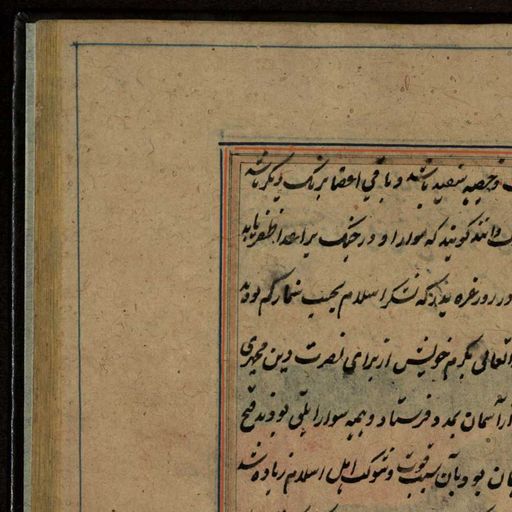 و خصیه سفید باشد و باقی اعضا برنک دیکر باشد
دانند کویند که سوار او در جنک بر اعدا ظفر یابد
در روز غزه بدر که لشکر اسلام بحسب شمار کم بودند
تعالی بکرم خویش از برای نصرت دین محمدی
از آسمان بمدد فرستاد و همه سوار ابلق بودند فتح
بود بآن سبب قوت و شوکت اهل اسلام زیاده شد